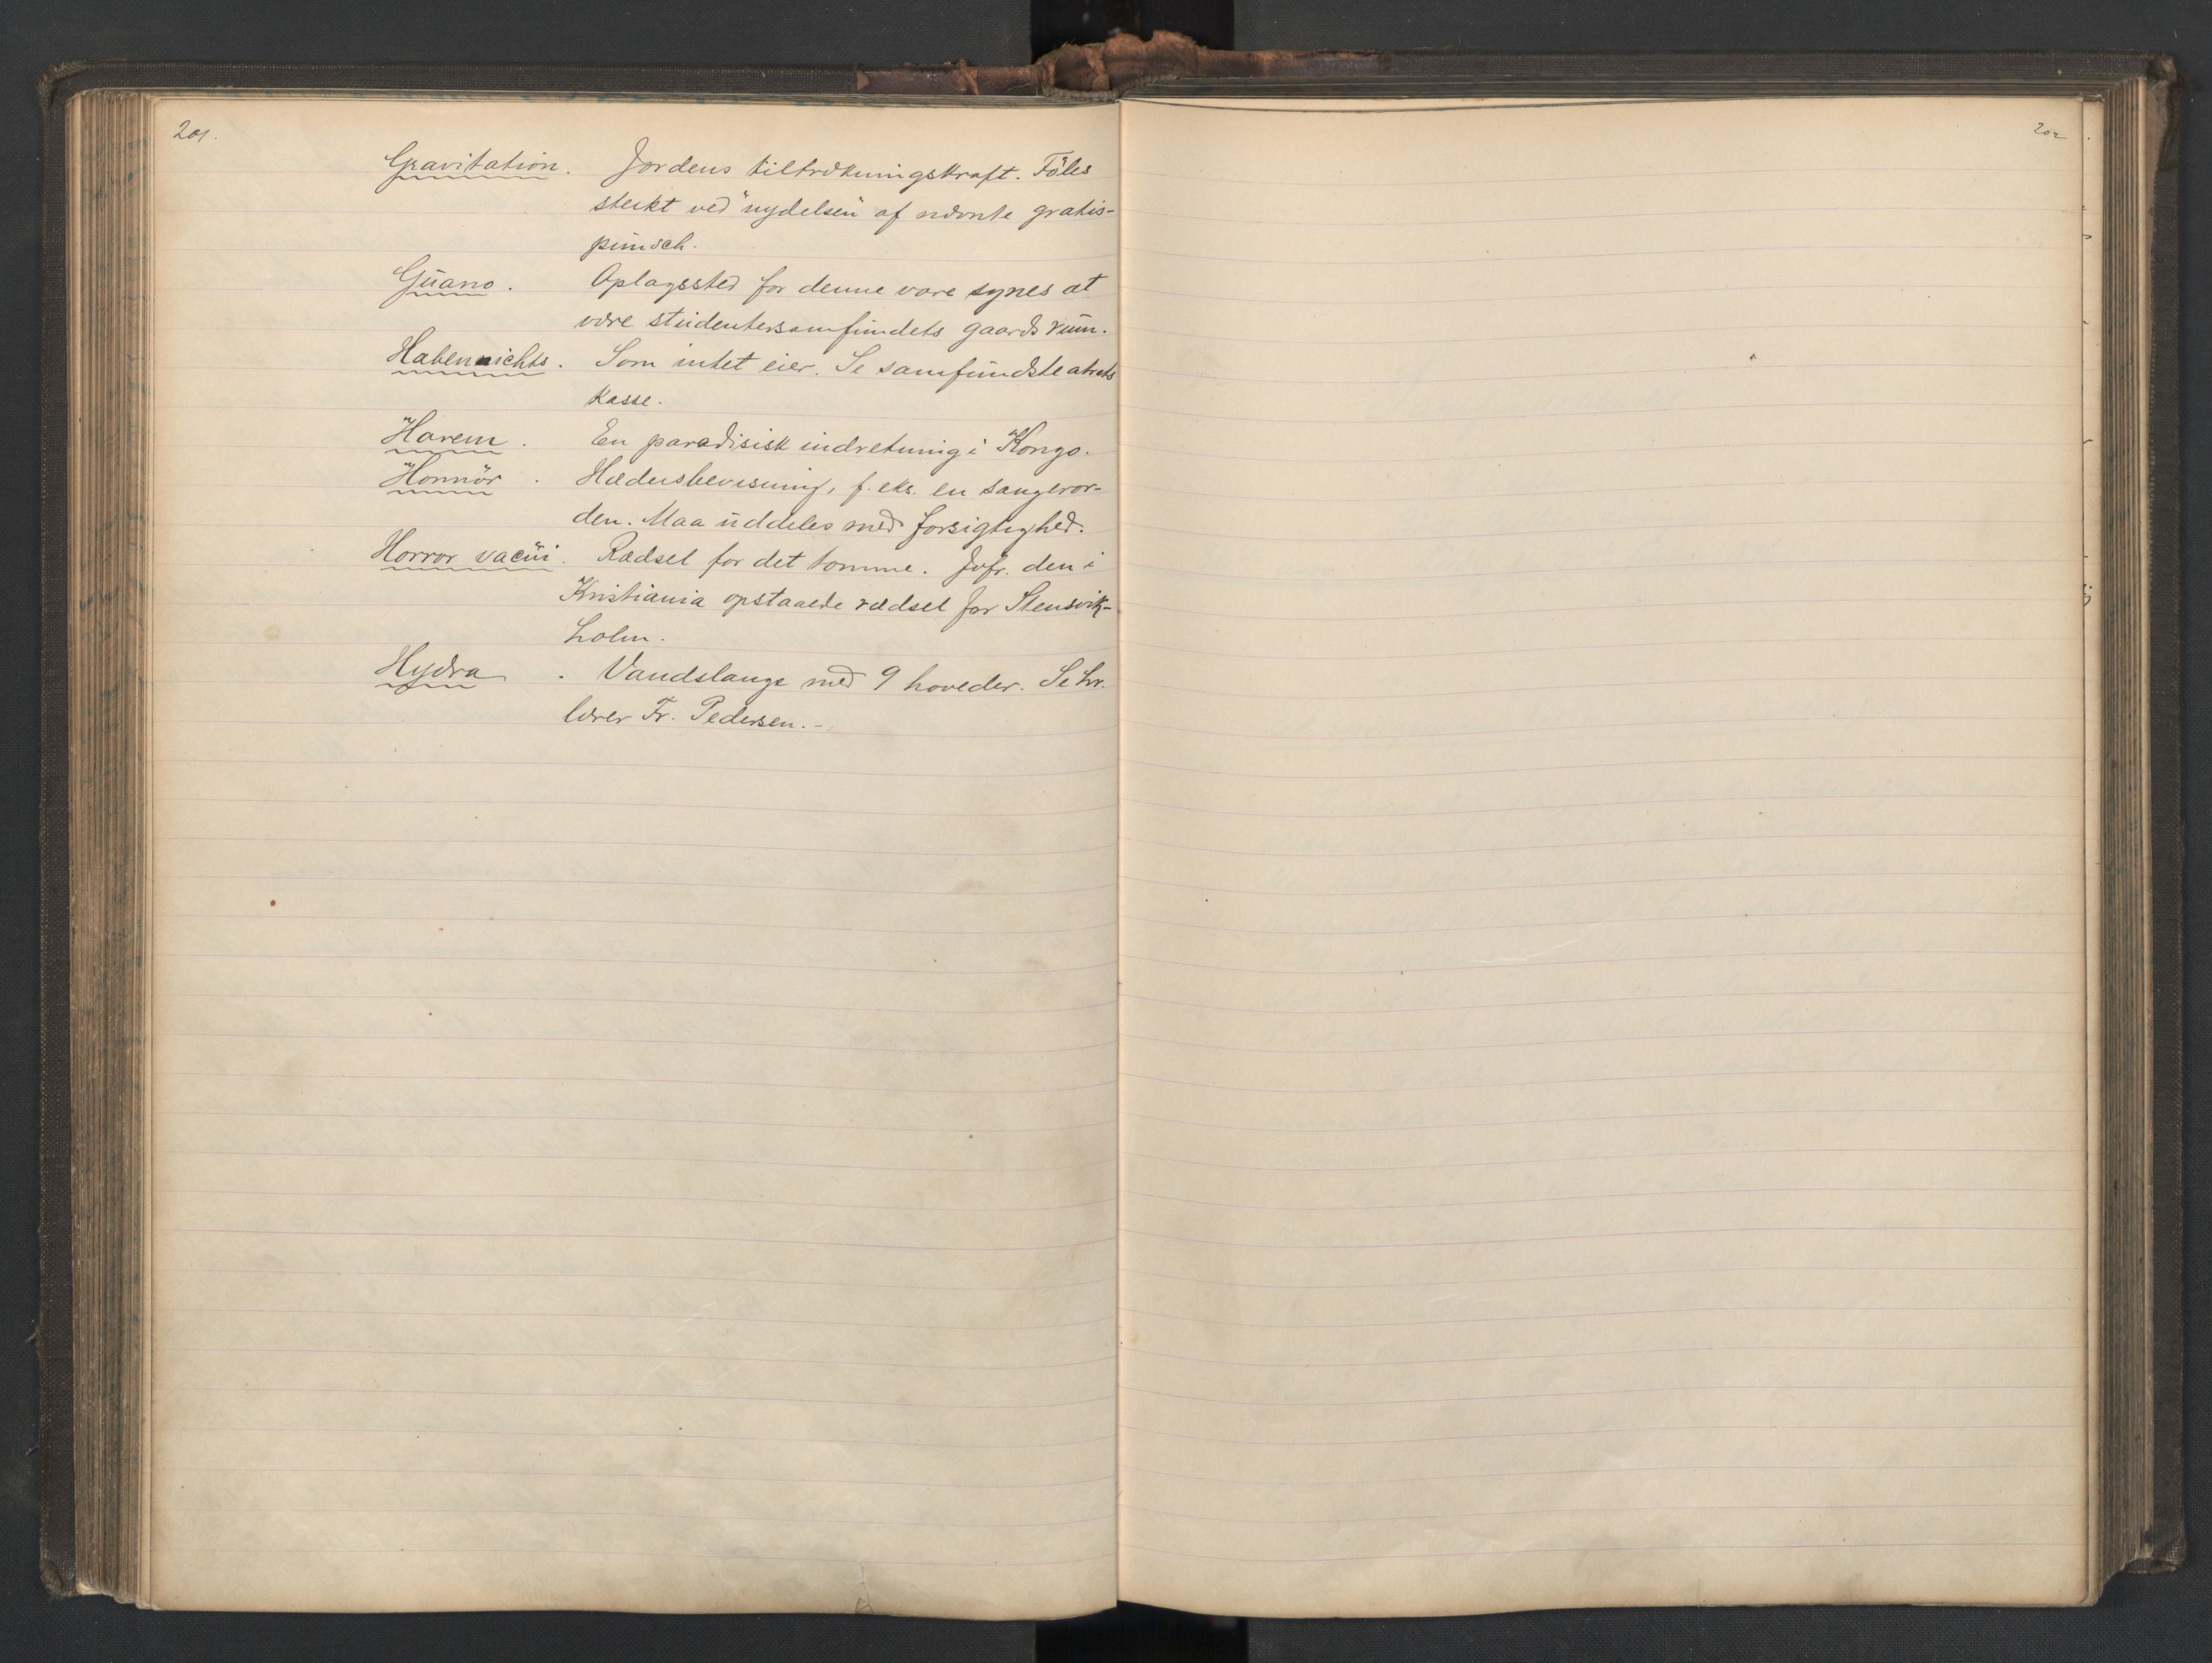 201.
Gravitation. Jordens tiltrækningskraft. Föles
sterkt ved "nydelsen" af nævnte gratis-
punsch.
Guano. Oplagssted for denne vare synes at
være studentersamfundets gaardsrum.
Habenichts. Som intet eier. Se samfundsteatrets
kasse.
Harem. En paradisisk indretning i Kongo.
Honnör. Hædersbevisning, f. eks. en sangeror-
den. Maa uddeles med forsigtighed.
Horror vacui. Rædsel for det tomme. Jvfr. den i
Kristiania opstaaede rædsel for Stensvik-
holm.
Hydra. Vandslange med 9 hoveder. Se hr.
lærer Fr. Pedersen.-
202